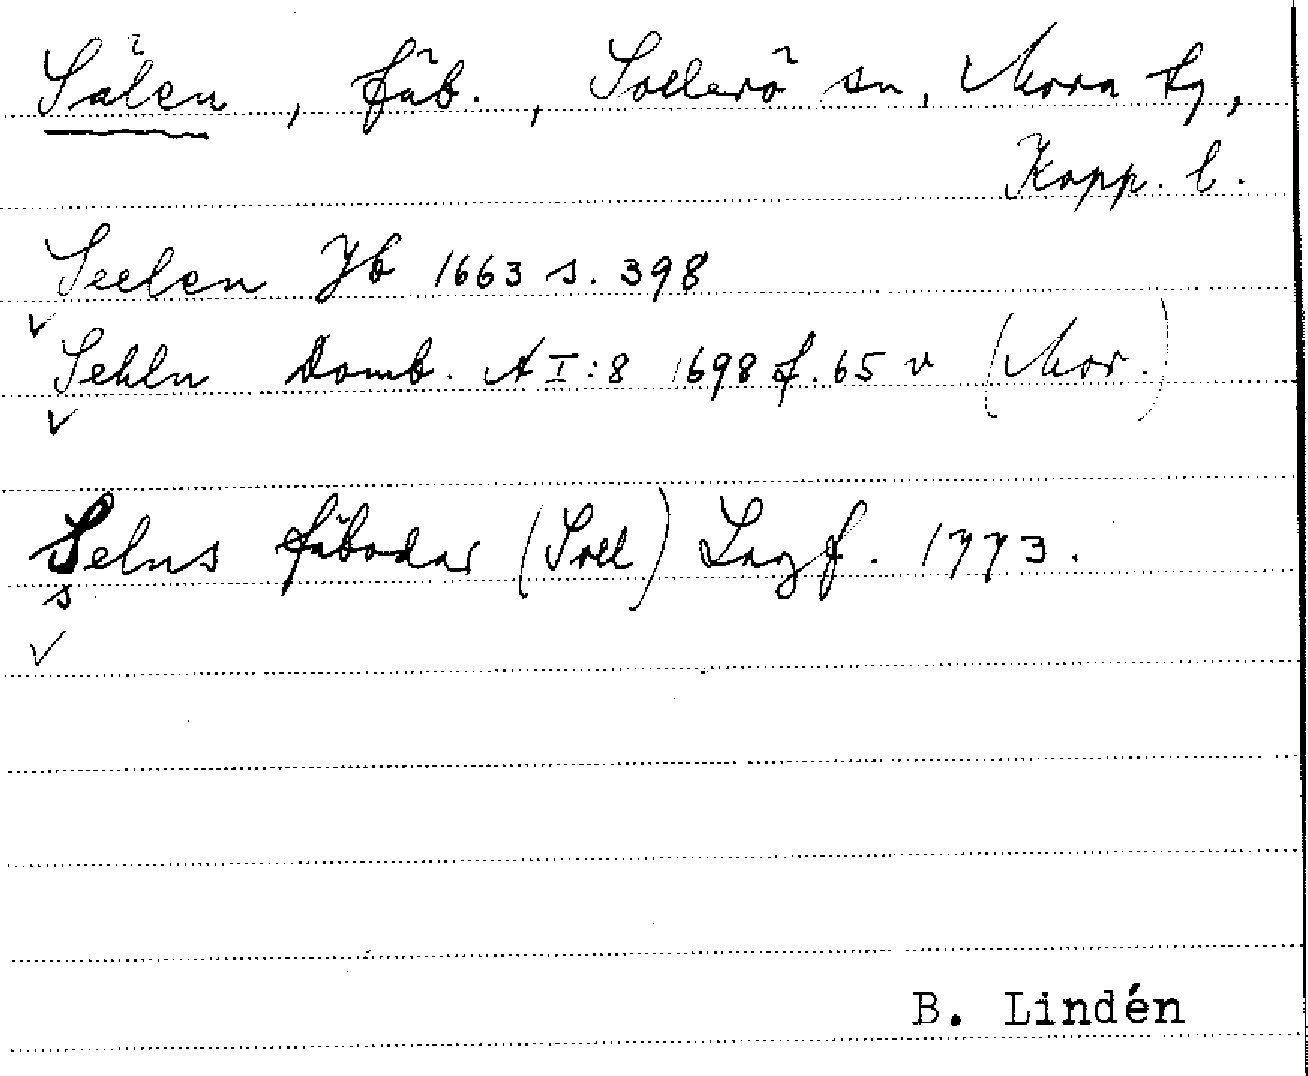 Sälen, fäb., Sollerö sn, Mora tg,
Kopp. l.
Seelen Jb 1663 s. 398
v
Sehln Domb. A I:8 1698 f. 65 v (Mor.)
v
Selns fäbodar (Soll) Lagf. 1773.
s
v
B. Lindén